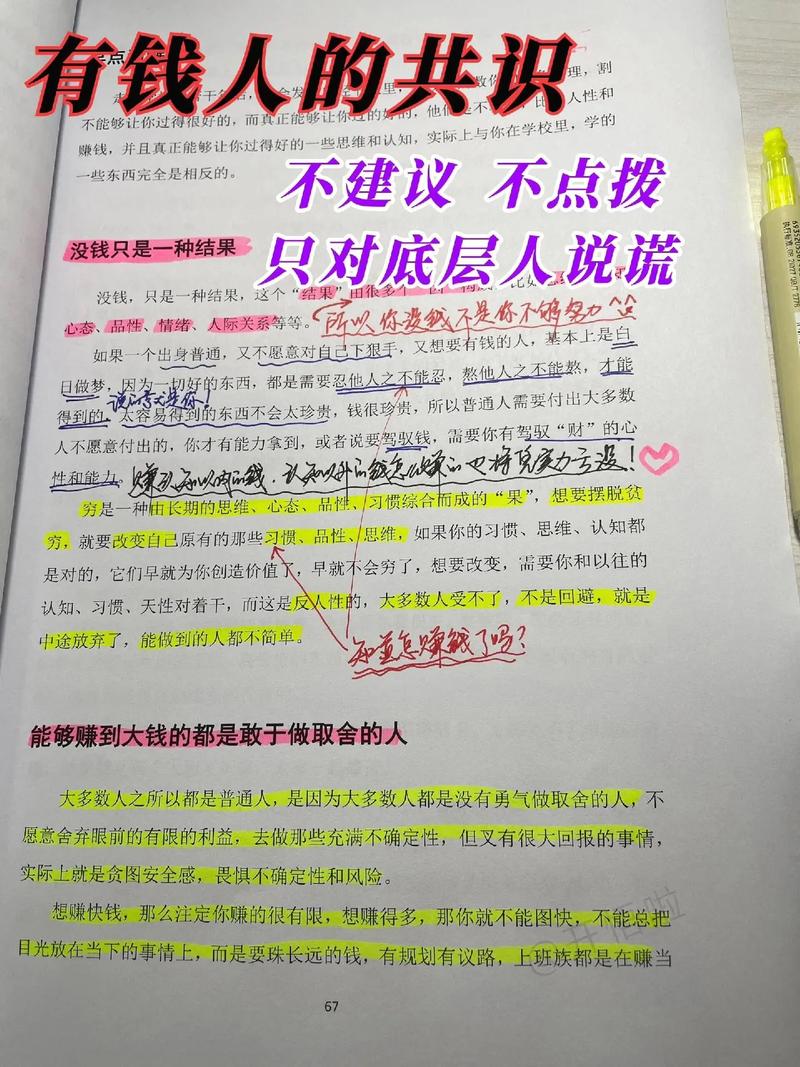 有钱人的共识
不建议 不点拨
只对底层人说谎
不能够让你过得很好的，而真正能够让你过的好的，他
人性和
赚钱，并且真正能够让你过得好的一些思维和认知，实际上与你在学校里，学的
一些东西完全是相反的。
没钱只是一种结果
没钱，只是一种结果，这个“结果”由很多个
心态、品性、情绪、人际关系等等。
所以你没钱不是你不够努力
如果一个出身普通，又不愿意对自己下狠手，又想要有钱的人，基本上是白
日做梦，因为一切好的东西，都是需要忍他人之不能忍，熬他人之不能熬，才能
说的就是你！
得到的，太容易得到的东西不会太珍贵，钱很珍贵，所以普通人需要付出大多数
人不愿意付出的，你才有能力拿到，或者说要驾驭钱，需要你有驾驭“财”的心
性和能力。
赚认知以内的钱，认知以外的钱怎么赚的也将凭实力亏没！
穷是一种由长期的思维、心态、品性、习惯综合而成的“果”，想要摆脱贫
穷，就要改变自己原有的那些习惯、品性、思维，如果你的习惯、思维、认知都
是对的，它们早就为你创造价值了，早就不会穷了，想要改变，需要你和以往的
认知、习惯、天性对着干，而这是反人性的，大多数人受不了，不是回避，就是
中途放弃了，能做到的人都不简单。
知道怎赚钱了吗？
能够赚到大钱的都是敢于做取舍的人
大多数人之所以都是普通人，是因为大多数人都是没有勇气做取舍的人，不
愿意舍弃眼前的有限的利益，去做那些充满不确定性，但又有很大回报的事情，
实际上就是贪图安全感，畏惧不确定性和风险。
想赚快钱，那么注定你赚的很有限，想赚得多，那你就不能图快，不能总把
目光放在当下的事情上，而是要珠长远的钱，有规划有议路，上班族都是在赚当
67